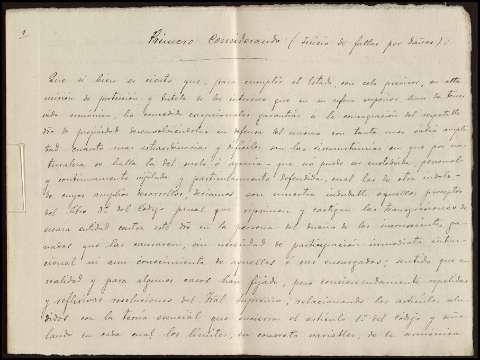 Primero Considerando (Juicio de faltas por daños):
Que si bien es cierto que, para cumplir el Estado con esta primera, en alta
misión de protección y tutela de los intereses que en su esfera superior tiene
vida humana, ha concedido excepcionales garantías a la consagración del respetable
dro de propiedad desenvolviéndolas en defensa del mismo con tanta mas cuita ampli
tud cuanto mas extraordinarias y difíciles son las circunstancias en que por na
turaleza se halla la del suelo ó agraria - que no puede ser custodiada, personal
y continuamente vigilada y particularmente defendida, cual las de otra índole -
de cuyos amplios desarrollos, son muestra indudable aquellos preceptos
del libro 3º del Código penal que reprimen y castigan las transgresiones de
escasa entidad contra este dro en la persona del dueño de los ga
nados que las causaren, sin necesidad de participación inmediata inten
cional ni aun conocimiento de aquellos ó sus encargados; sentido que en
realidad y para algunos casos han fijado, pero repetidas
y reflexivas resoluciones del Tral Supremo, relacionando los artículos alu
didos con la teoría esencial que encierra el artículo 1º del Código y seña
lando en cada cual los límites, en concreto variables, de la armonica